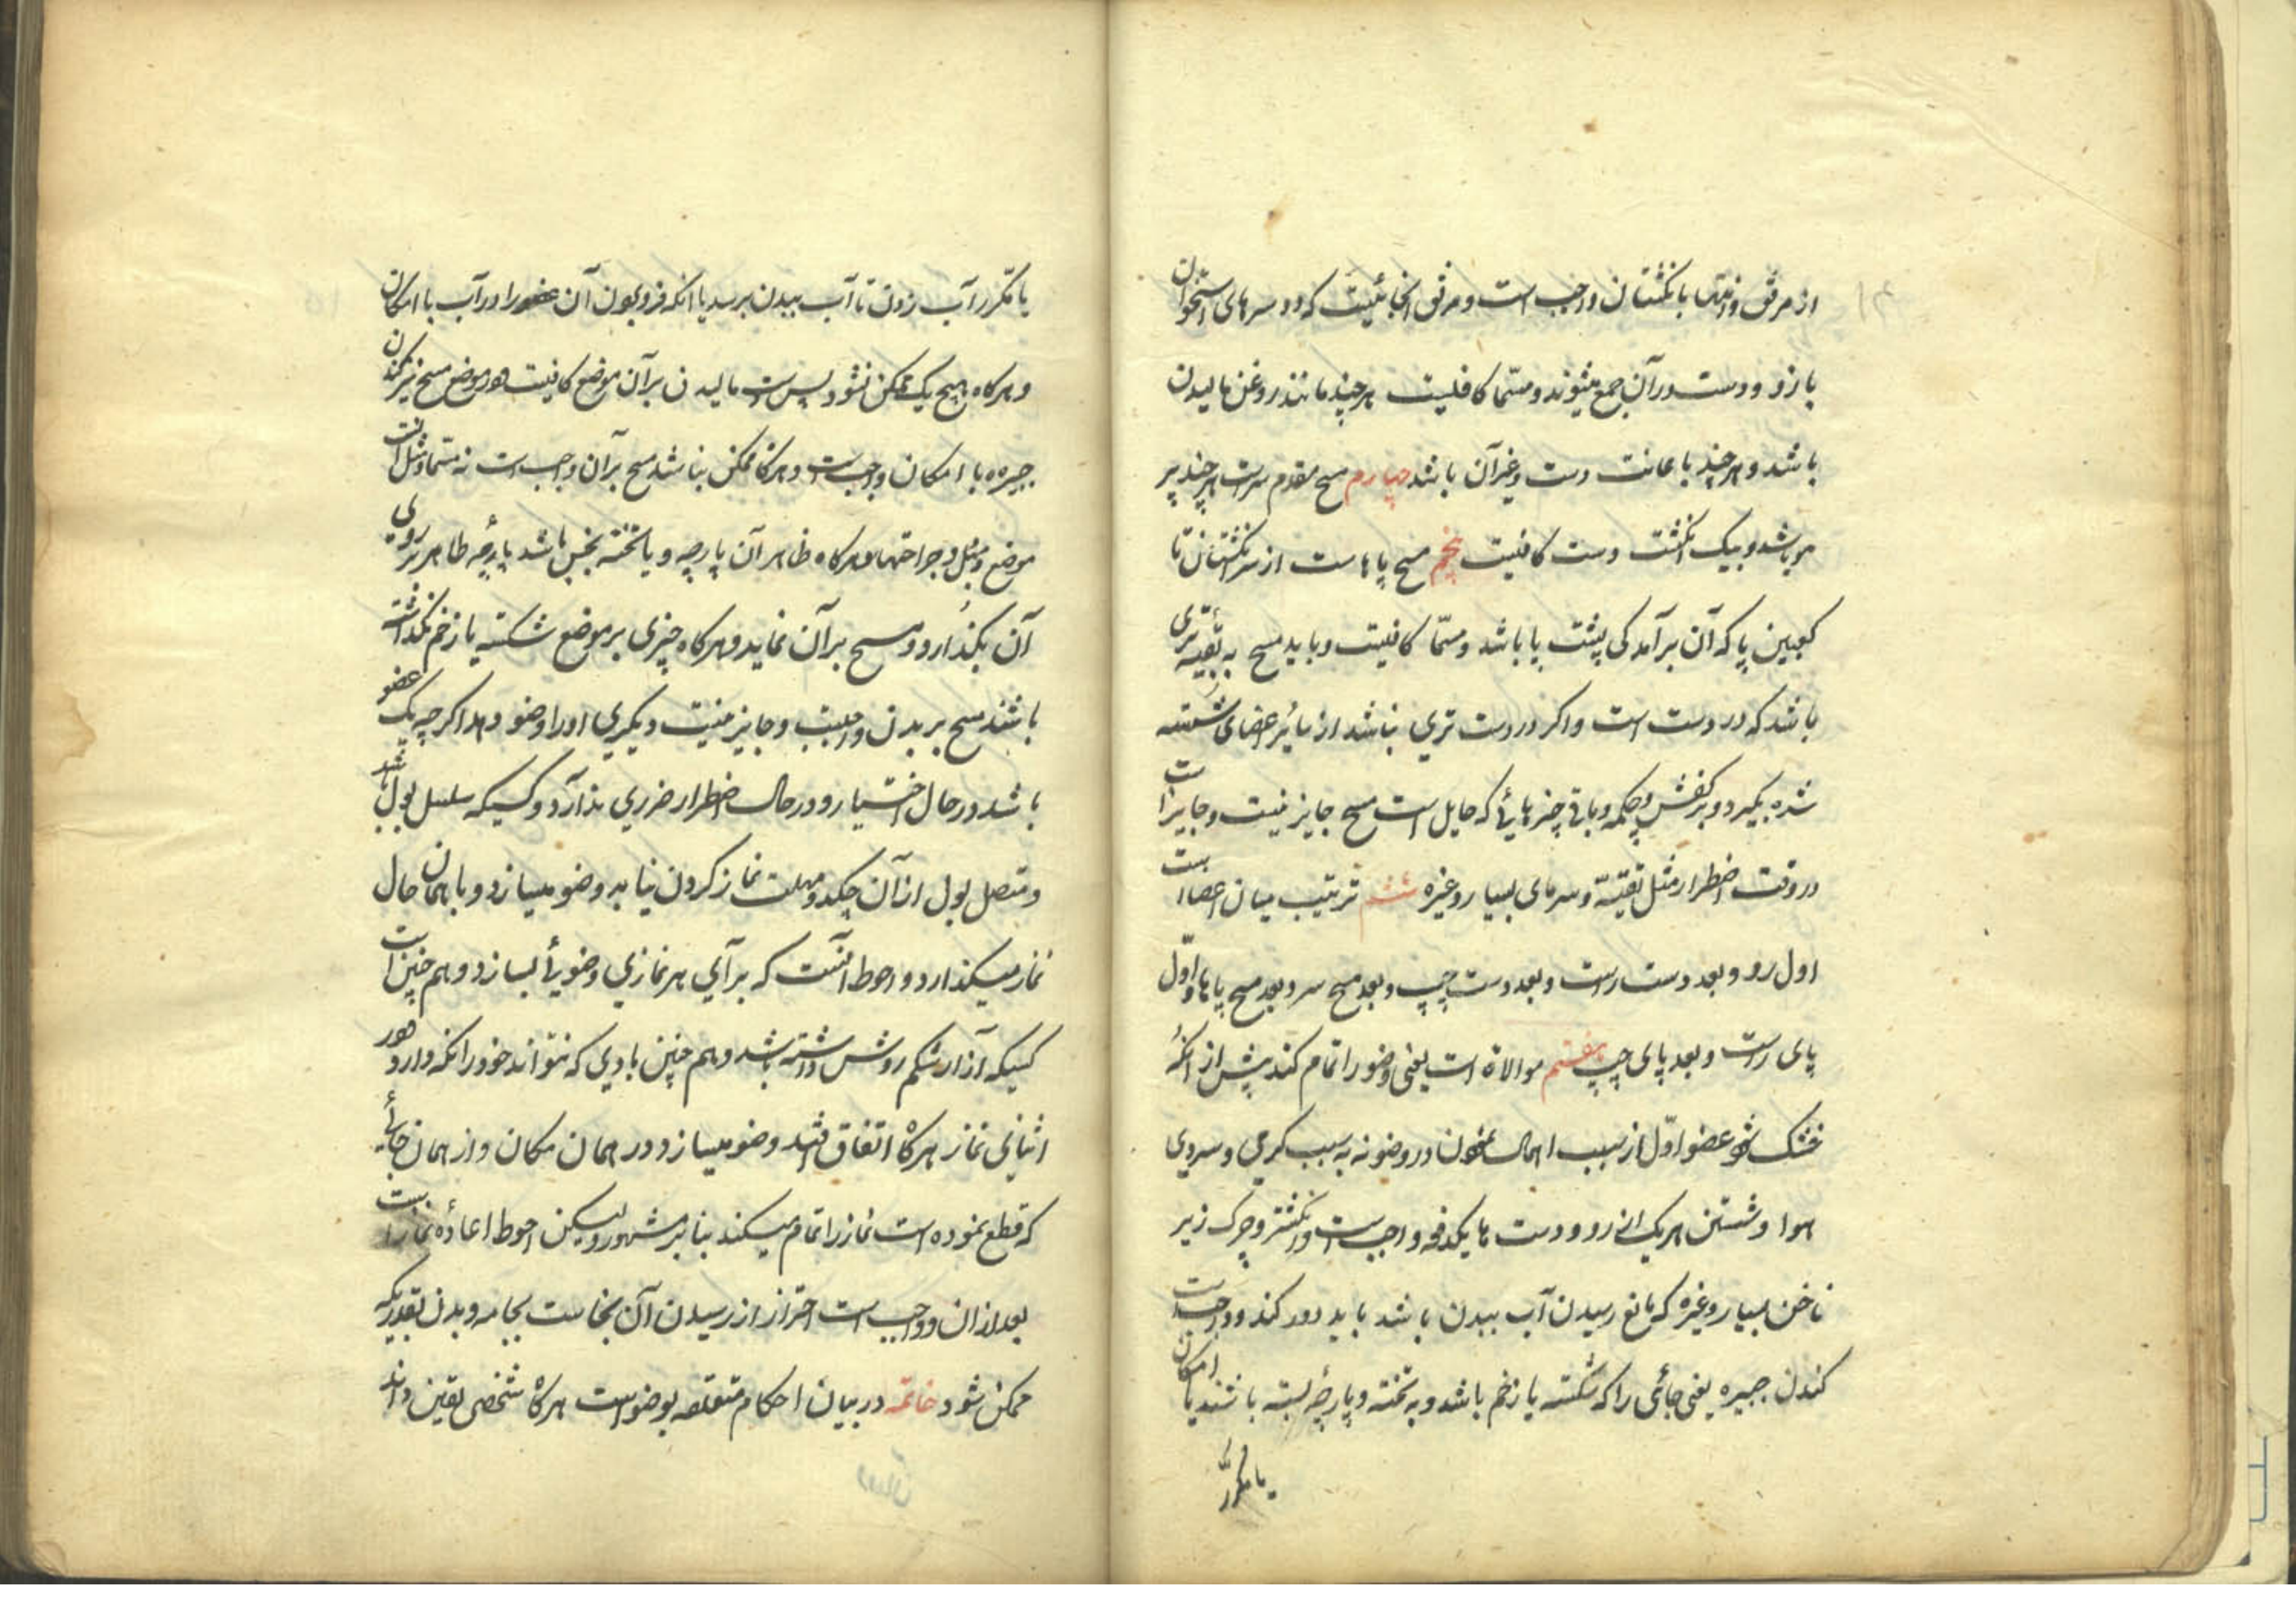 از مرفق و انتها بانگشتان واجب است و مرفق انجائیست که دو سرهای استخوان
بازو و دست در آن جمع میشوند و مسما کافیست هر چند مانند روغن مالیدن
باشد و هر چند باعانت دست و غیر آن باشد چهارم مسح مقدم سر است هر چند بر
مو باشد و بیک انگشت دست کافیست پنجم مسح پاها است از سر انگشتان تا
کعبین پا که آن برآمدکی پشت پا باشد و مسمّا کافیست و باید مسح به بقیّه تری
باشد که در دست است و اکر در دست تری نباشد از سایر اعضای شسته
شده بکیرد و بر کفش و چکمه و باقی چیزهائی که حایل است مسح جایز نیست و جایز است
در وقت اضطرار مثل تقیّه و سرمای بسیار و غیره ششم ترتیب میان اعضا است
اول رو و بعد دست راست و بعد دست چپ و بعد مسح سر و بعد مسح پاها و اوّل
پای راست و بعد پای چپ هفتم موالاة است یعنی وضو را تمام کند پیش از انکه
خشک شود عضو اوّل از سبب اهمال نمودن در وضو نه به سبب کرمی و سردی
هوا و شستن هر یک از رو و دست ها یکدفعه واجب است و انکشتر و چرک زیر
ناخن بسیار و غیره که مانع رسیدن آب ببدن باشد باید دور کند و واجب است
کندن جبیره یعنی جائی را که شکسته یا زخم باشد و به تخته و پارچه بسته باشند با امکان
یا مکرّر
یا مکرّر آب زدن تا آب ببدن برسد یا انکه فرو بردن آن عضو را در آب با امکان
و هرکاه هیچ یک ممکن نشود پس دست مالیدن بر آن موضع کافیست و در موضع مسح نیز کندن
جبیره با امکان واجب است و هرکاه ممکن نباشد مسح بر آن واجب است نه مسما و مثل انست
موضع دمل و جراحتها و هرکاه ظاهر آن پارچه و یا تخته نجس باشد پارچه طاهر بر روی
آن بکذارد و مسح بر آن نماید و هرکاه چیزی بر موضع شکسته یا زخم نکذاشته
باشند مسح بر بدن واجبست و جایز نیست دیکری او را وضو دهد اکرچه یک عضو
باشد در حال اختیار و در حال اضطرار ضرری ندارد و کسیکه سلسل بول باشد
و متصل بول از آن چکد و مهلت نماز کردن نیابد وضو میسازد و با همان حال
نماز میکذارد و احوط آنست که برآی هر نمازی وضوئی بسازد و هم چنین است
کسیکه آزار شکم روش داشته باشد و هم چنین بادی که نتواند خود را نکه دارد و در
اثنای نماز هرکاه اتفاق افتد وضو میسازد در همان مکان و از همان جائی
که قطع نموده است نماز را تمام میکند بنابر مشهور و لیکن احوط اعادهٔ نماز است
بعد از ان و واجب است احتراز از رسیدن آن نجاست بجامه و بدن بقدریکه
ممکن شود خاتمه در بیان احکام متعلقه بوضو است هرکاه شخصی یقین داند